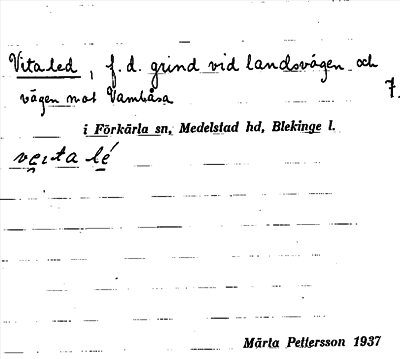 Vita led, f.d. grind vid landsvägen och
vägen mot Vambåsa 7.
i Förkärla sn, Medelstad hd, Blekinge l.
veıta lé
Märta Pettersson 1937